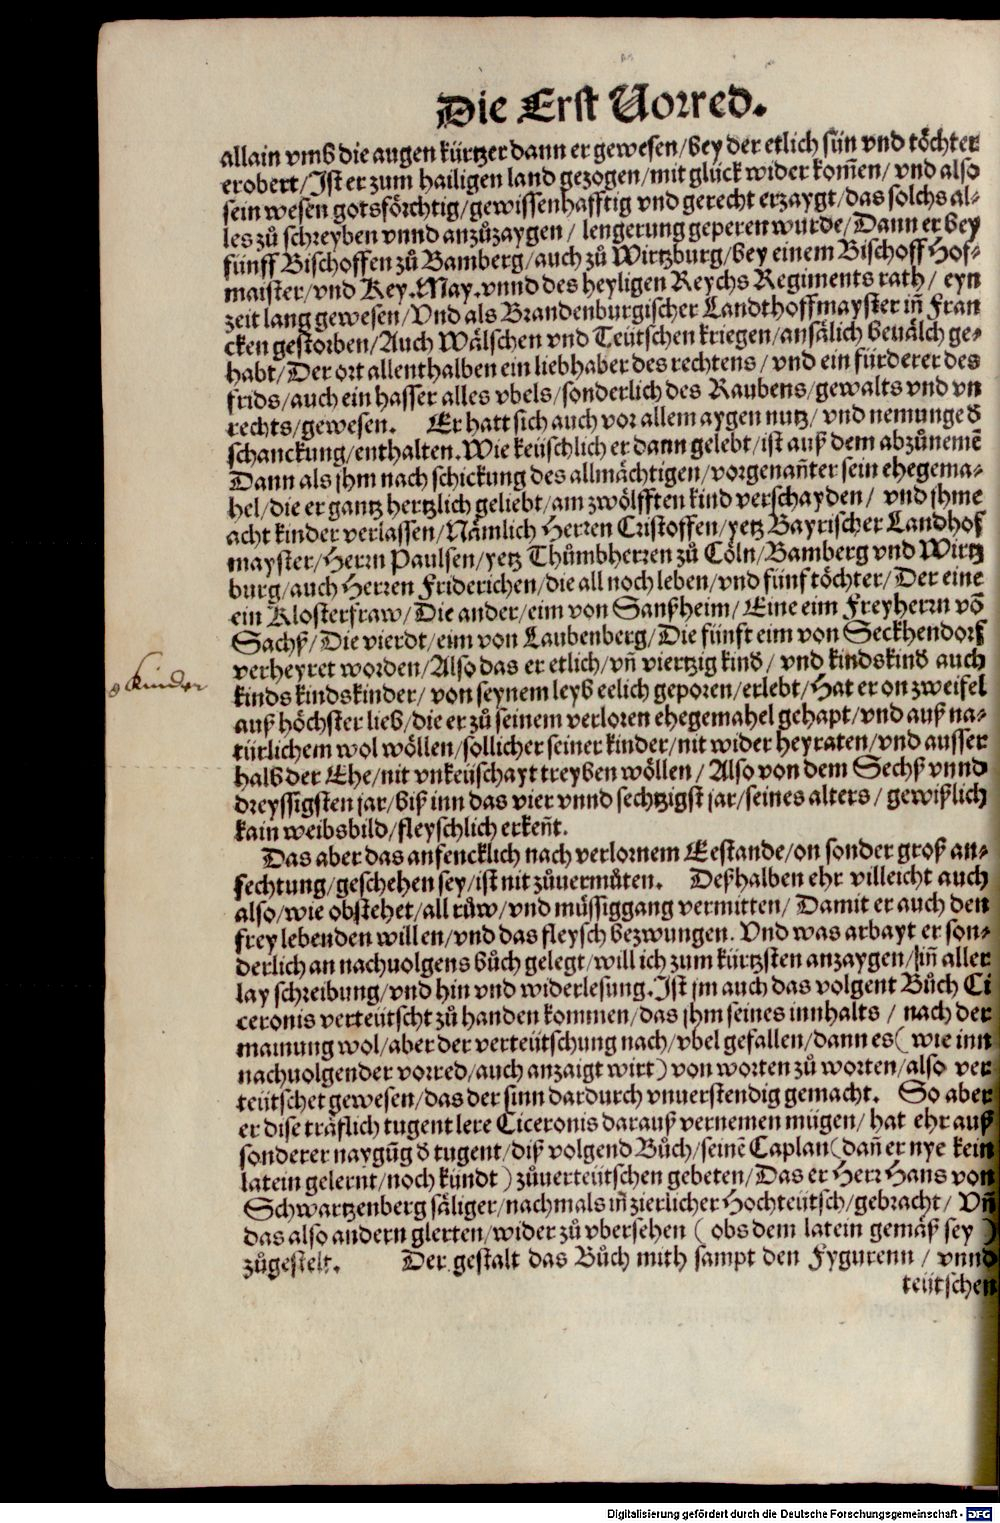 Die Erst Vorred.
allain vmb die augen kürtzer dann er gewesen/bey der etlich sün vnd töchter
erobert/Ist er zum hailigen land gezogen/mit glück wider kom̄en/ vnd also
sein wesen gotsförchtig/gewissenhafftig vnd gerecht erzaygt/das solchs al-
les zů schreyben vnnd anzůzaygen / lengerung geperen wurde/Dann er bey
fünff Bischoffen zů Bamberg/auch zů Wirtzburg/bey einem Bischoff Hof-
maister/vnd Key.May.vnnd des heyligen Reychs Regiments rath/ eyn
zeit lang gewesen/Vnd als Brandenburgischer Landthoffmayster in̄ Fran
cken gestorben/Auch Wälschen vnd Teütschen kriegen/ansälich beuälch ge-
habt/Der ort allenthalben ein liebhaber des rechtens/ vnd ein fürderer des
frids/auch ein hasser alles vbels/sonderlich des Raubens/gewalts vnd vn
rechts/gewesen. Er hatt sich auch vor allem aygen nutz/ vnd nemunge d̄
schanckung/enthalten.Wie keüschlich er dann gelebt/ist auß dem abzůnemē
Dann als jhm nach schickung des allmächtigen/vorgenan̄ter sein ehegema-
hel/die er gantz hertzlich geliebt/am zwölfften kind verschayden/ vnd jhme
acht kinder verlassen/Nämlich Herren Cristoffen/yetz Bayrischer Landhof
mayster/Herrn Paulsen/yetz Thůmbherren zů Cöln/Bamberg vnd Wirtz
burg/auch Herren Friderichen/die all noch leben/vnd fünf töchter/Der eine
ein Klosterfraw/Die ander/eim von Sanßheim/ Eine eim Freyherrn vō
Sachß/Die vierdt/eim von Laubenberg/Die fünft eim von Seckhendorf
verheyret worden/Also das er etlich/vn̄ viertzig kind/ vnd kindskind auch
8 kinder
kinds kindskinder/ von seynem leyb eelich geporen/erlebt/Hat er on zweifel
auß höchster lieb/die er zů seinem verloren ehegemahel gehapt/vnd auß na-
türlichem wol wöllen/sollicher seiner kinder/nit wider heyraten/vnd ausser
halb der Ehe/nit vnkeüschayt treyben wöllen/Also von dem Sechß vnnd
dreyssigsten jar/biß inn das vier vnnd sechtzigst jar/seines alters/ gewißlich
kain weibsbild/fleyschlich erken̄t.
Das aber das anfencklich nach verlornem Eestande/on sonder groß an-
fechtung/geschehen sey/ist nit zůuermůten. Deßhalben ehr villeicht auch
also/wie obstehet/all růw/vnd müssiggang vermitten/ Damit er auch den
frey lebenden willen/vnd das fleysch bezwungen. Vnd was arbayt er son-
derlich an nachuolgens bůch gelegt/will ich zum kürtzsten anzaygen/in̄ aller
lay schreibung/vnd hin vnd widerlesung.Ist jm auch das volgent Bůch Ci
ceronis verteütscht zů handen kommen/das jhm seines innhalts / nach der
mainung wol/aber der verteütschung nach/vbel gefallen/dann es( wie inn
nachuolgender vorred/auch anzaigt wirt) von worten zů worten/also ver
teütschet gewesen/das der sinn dardurch vnuerstendig gemacht. So aber
er dise träflich tugent lere Ciceronis darauß vernemen mügen/ hat ehr auß
sonderer naygūg d̄ tugent/diß volgend Bůch/seinē Caplan(dan̄ er nye kein
latein gelernt/noch kundt )zůuerteütschen gebeten/Das er Herr Hans von
Schwartzenberg säliger/nachmals in̄ zierlicher Hochteütsch/gebracht/ Vn̄
das also andern glerten/wider zů vbersehen ( obs dem latein gemäß sey )
zůgestelt. Der gestalt das Bůch mith sampt den Fygurenn / vnnd
teütschen
Digitalisierung gefördert durch die Deutsche Forschungsgemeinschaft - DFG